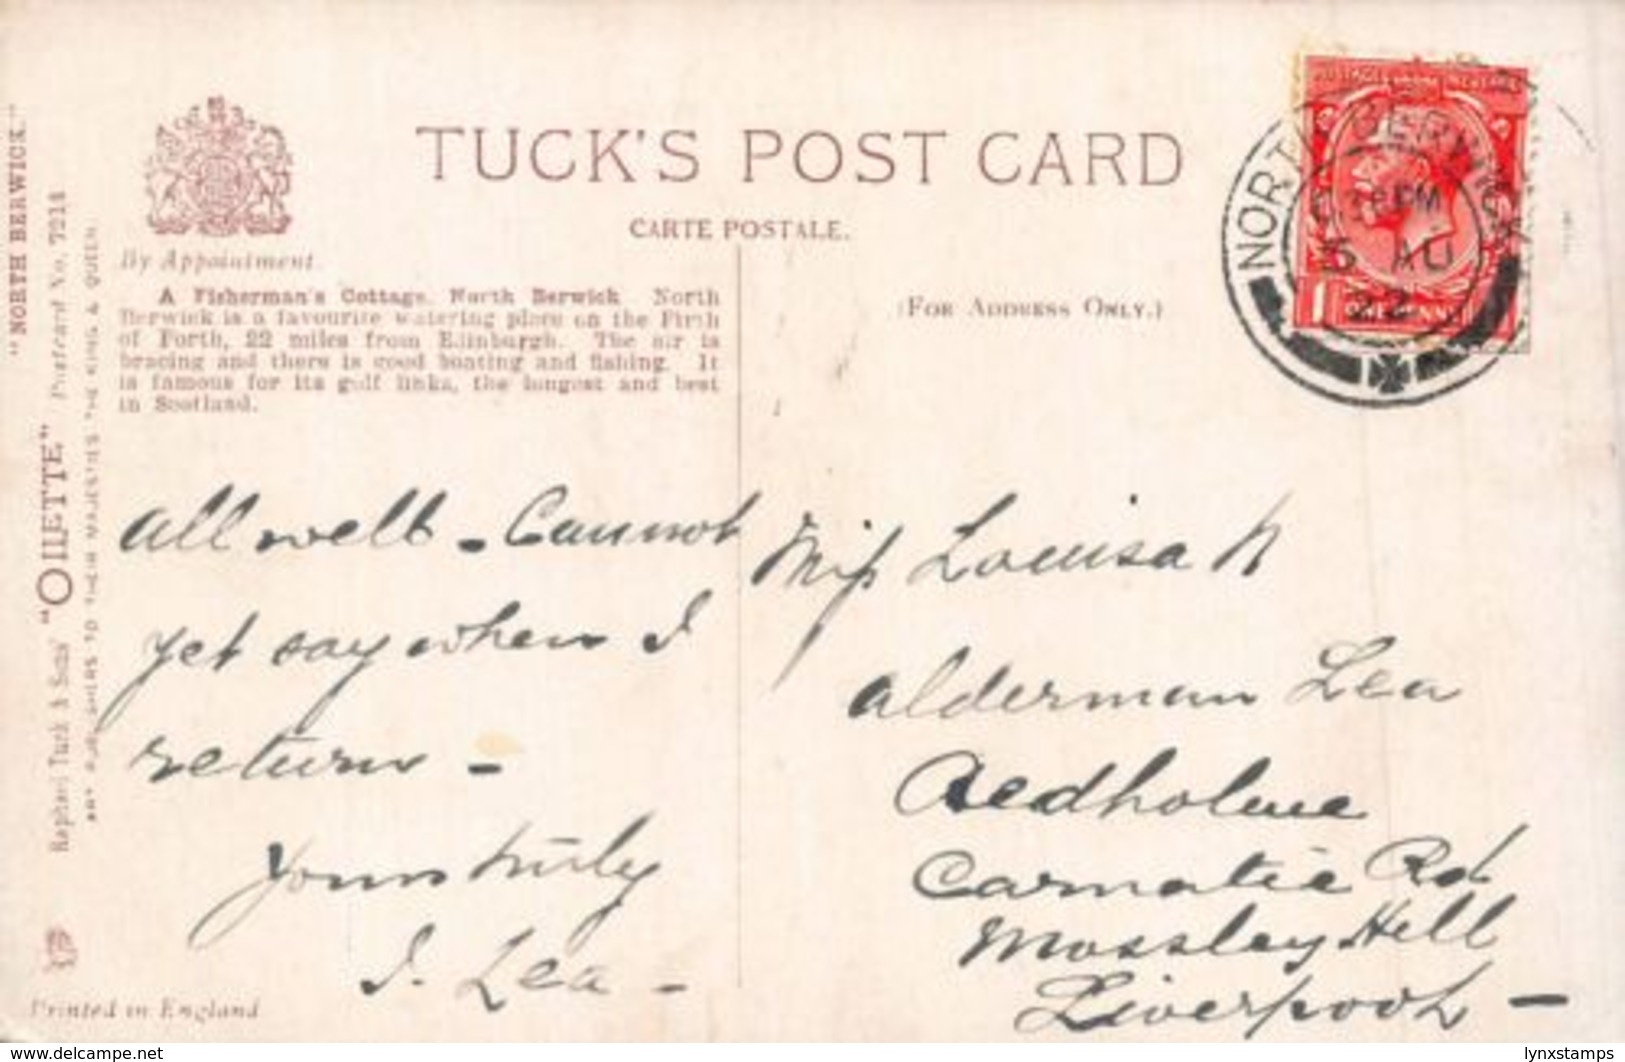 TUCK'S POST CARD
CARTE POSTALE.
By Appointment.
A Fisherman's Cottage, North Berwick North
Berwick is a favourite watering place on the Firth
of Forth, 22 miles from Edinburgh. The air is
bracing and there is good boating and fishing. It
is famous for its golf links, the longest and best
in Scotland.
(FOR ADDRESS ONLY.)
NORTH BERWICK
PM
5 AU
22
"NORTH BERWICK."
Raphael Tuck & Sons' "OILETTE" Postcard No. 7214
ART PUBLISHERS TO THEIR MAJESTIES THE KING & QUEEN.
All well - Cannot
yet say when I
return -
Yours truly
J. Lea -
Miss Louisa N
Alderman Lea
Redholme
Carnatic Rd
Mossley Hill
Liverpool -
Printed in England
www.delcampe.net
lynxstamps